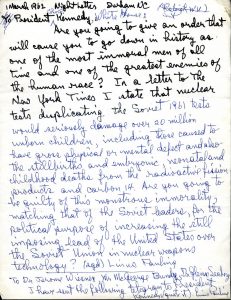 1 March 1962 Night Letter Durham NC
To President Kennedy, White House:
Are you going to give an order that
will cause you to go down in history as
one of the most immoral men of all
time and one of the greatest enemies of
the human race? In a letter to the
New York Times I state that nuclear
tests duplicating the Soviet 1961 tests
would seriously damage over 20 million
unborn children, including those caused to
have gross physical or mental defect and also
the stillbirths and embryonic, neonatal and
childhood deaths from the radioactive fission
products and carbon 14. Are you going to
be guilty of this monstrous immorality,
matching that of the Soviet leaders, for the
political purpose of increasing the still
imposing lead of the United States over
the Soviet Union in nuclear weapons
technology? (sgd) Linus Pauling
To Dr. Jerome Wiesner, McGeorge Bundy,
I have sent the following telegram to President
Kennedy